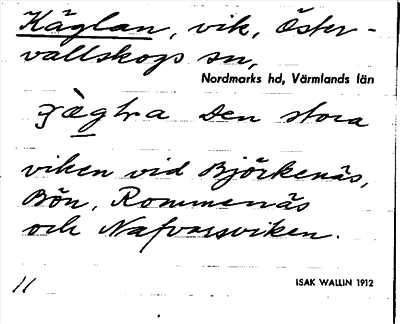 Käglan, vik, Öster-
vallskogs sn,
Nordmarks hd, Värmlands län
Den stora
viken vid Björkenäs,
Bön, Rommenäs
och Nafvarsviken.
11
ISAK WALLIN 1912